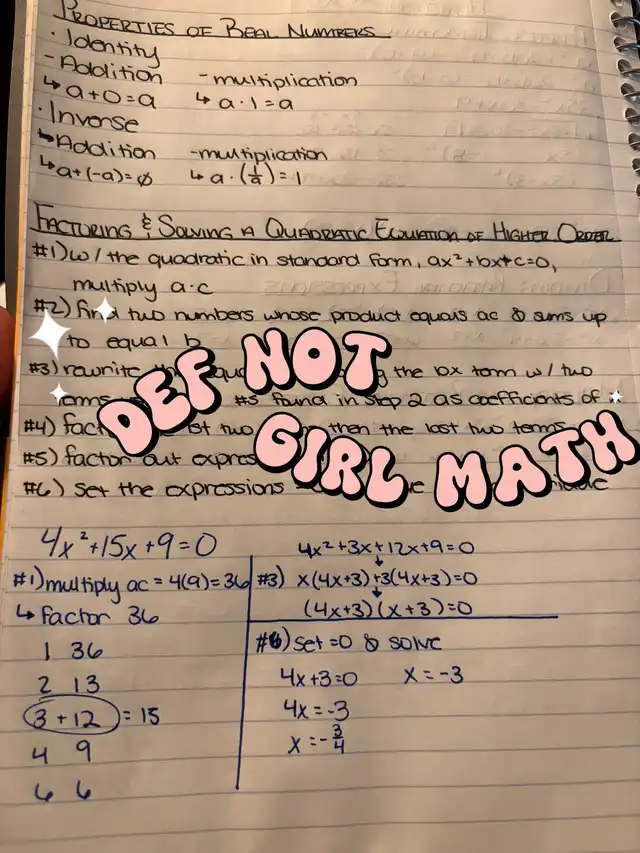 PROPERTIES OF REAL NUMBERS
· Identity
- Addition - multiplication
↳ a+0=a ↳ a·1=a
· Inverse
↳ Addition - multiplication
↳ a+(-a)=∅ ↳ a·(1/a)=1
FACTORING & SOLVING A QUADRATIC EQUATION OF HIGHER ORDER
#1) w/ the quadratic in standard form, ax²+bx+c=0,
multiply a·c
#2) find two numbers whose product equals ac & sums up
to equal b
#3) rewrite the the bx term w/ two
#s found in step 2 as coefficients of
#4) two then the last two terms
#5) factor out
#6) set the expressions
DEF NOT
GIRL MATH
4x²+15x+9=0
#1) multiply ac = 4(9) = 36
↳ factor 36
1 36
2 13
3 + 12 = 15
4 9
6 6
4x²+3x+12x+9=0
#3) x(4x+3)+3(4x+3)=0
(4x+3)(x+3)=0
#6) set =0 & solve
4x+3=0 x=-3
4x=-3
x=-3/4